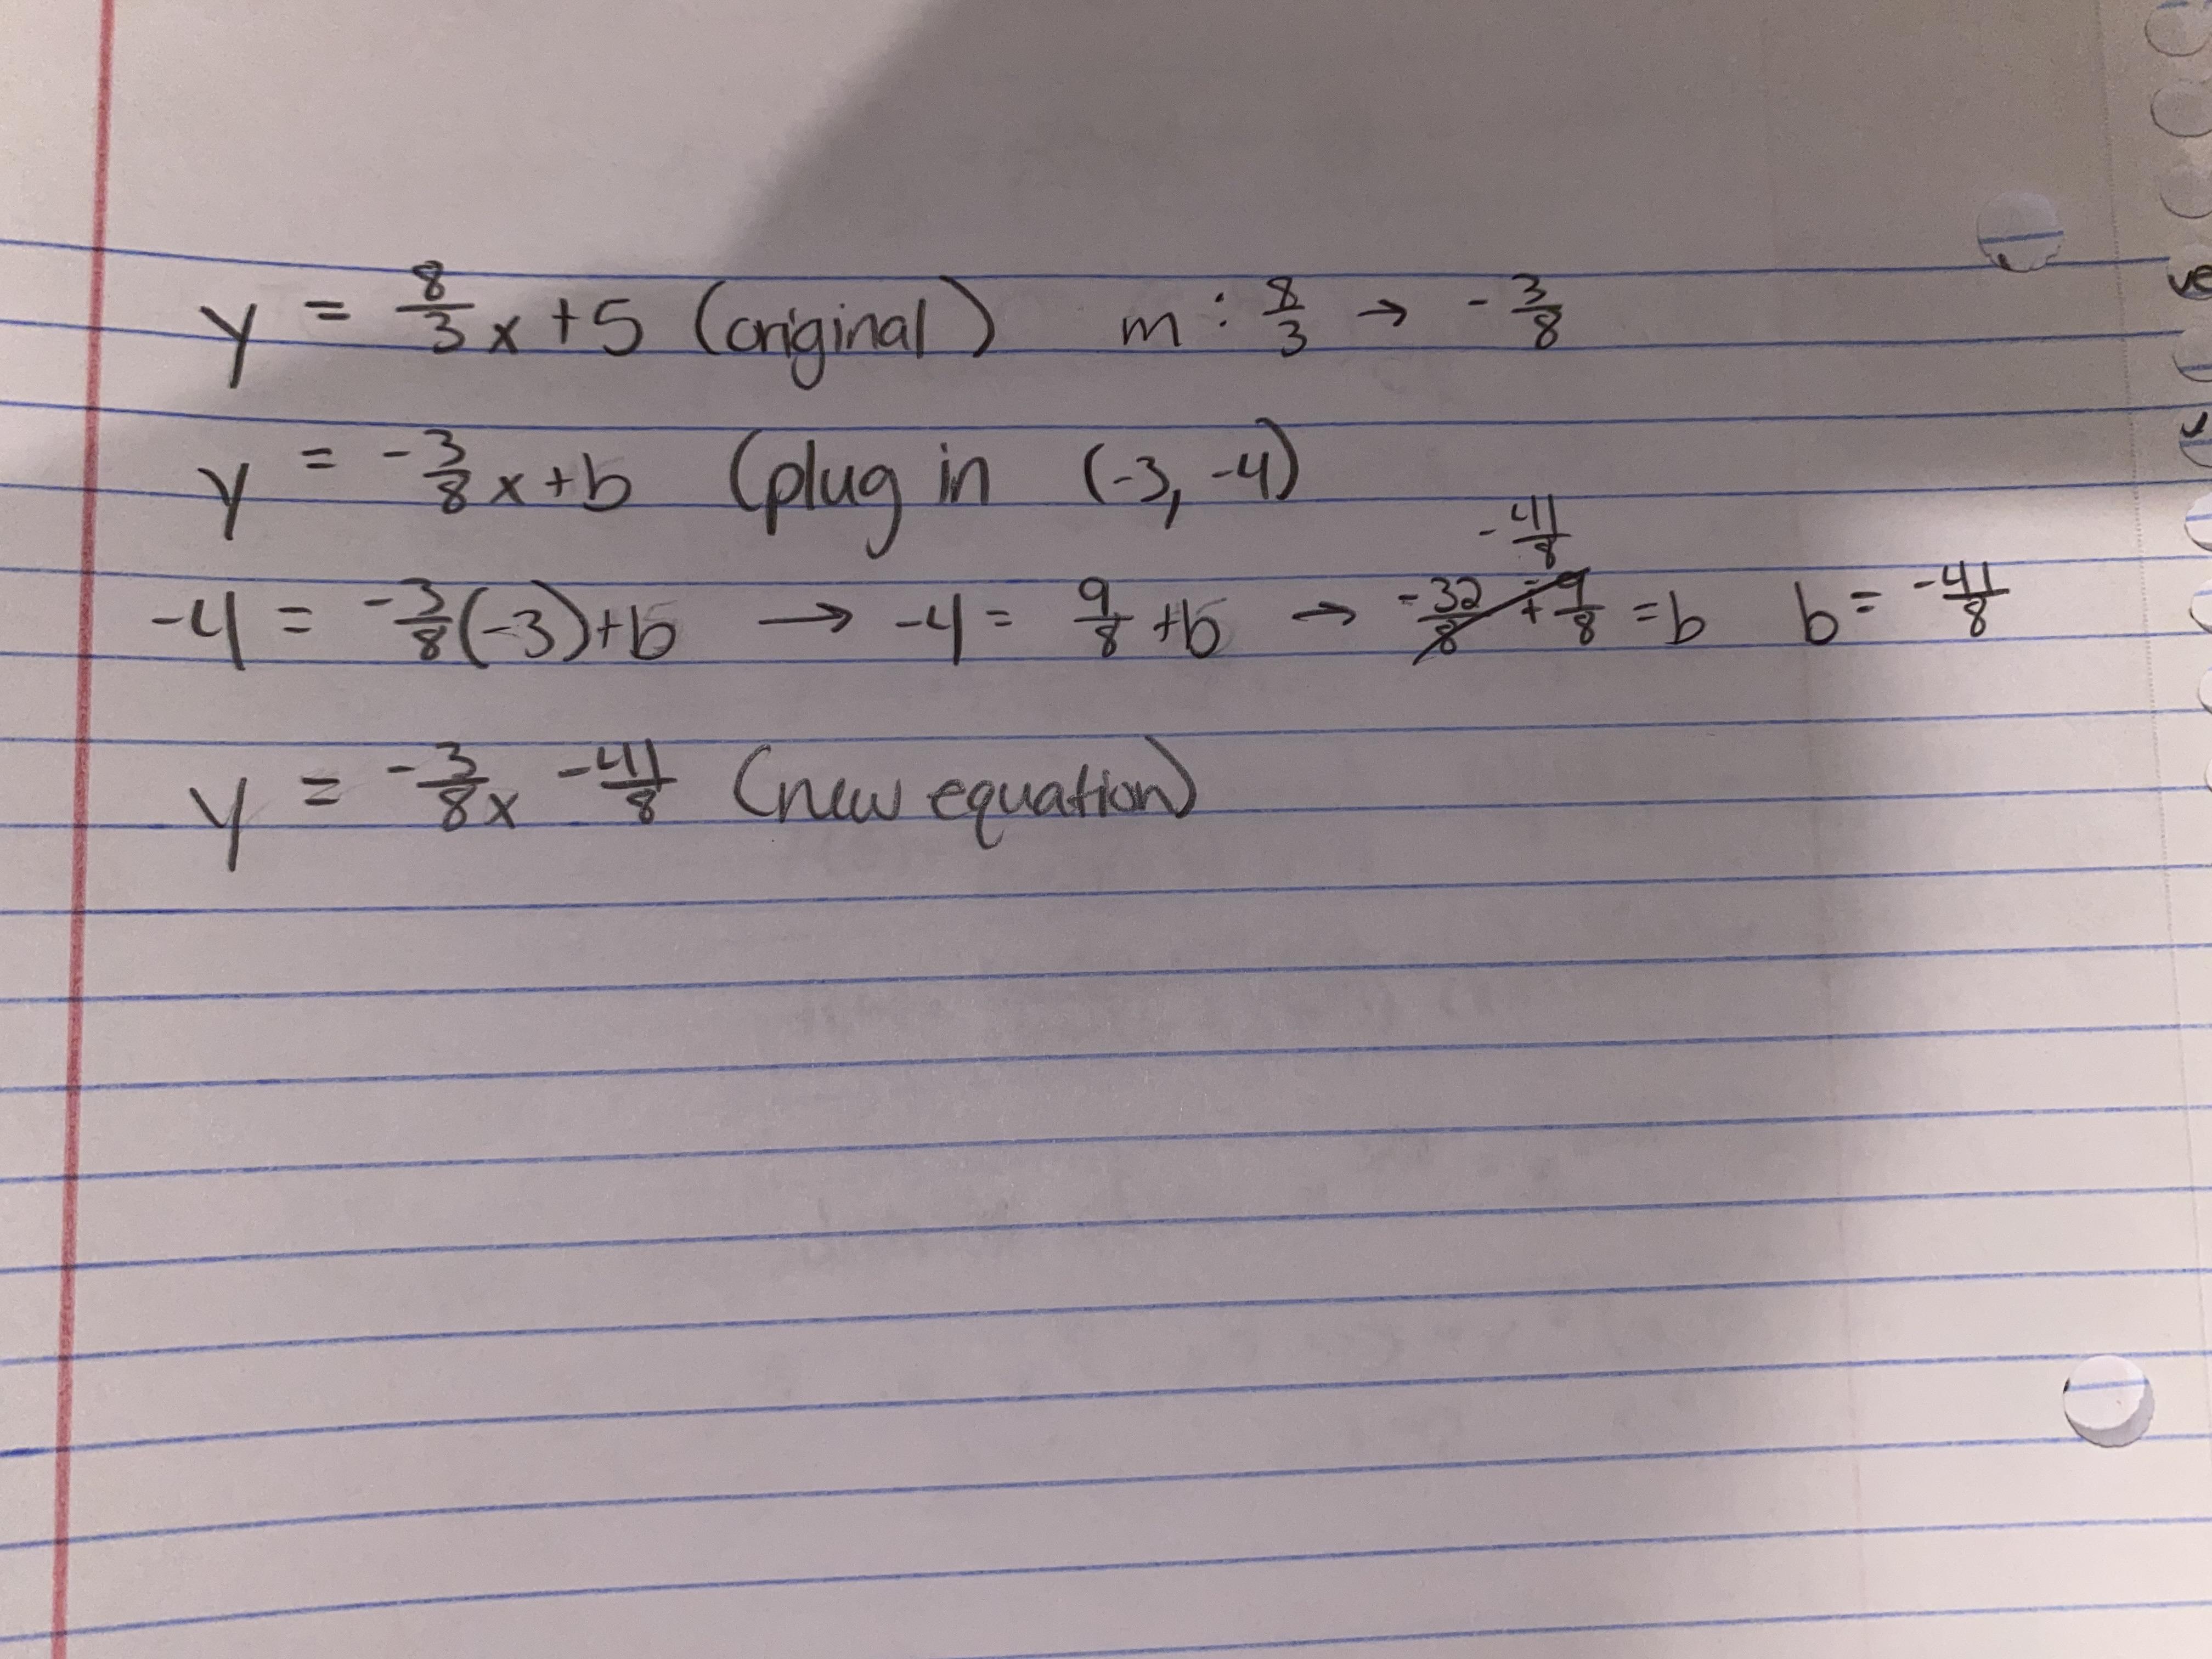 y = 8/3 x + 5 (original) m : 8/3 → - 3/8
y = - 3/8 x + b (plug in (-3, -4)
- 41/8
-4 = - 3/8 (-3) + b → -4 = 9/8 + b → = b b = - 41/8
y = - 3/8 x - 41/8 (new equation)